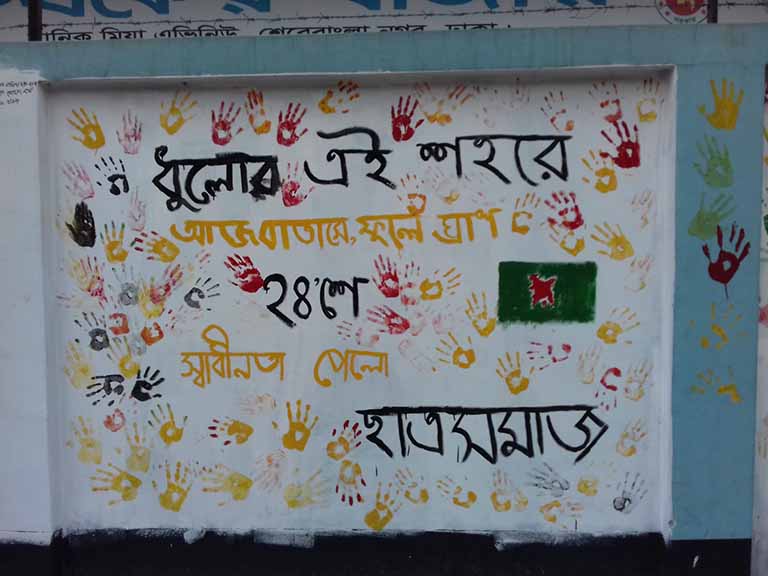 মানিক মিয়া এভিনিউ, শেরেবাংলা নগর, ঢাকা।
ধুলোর এই শহরে
আজ বাতাসে, ফুলে ঘ্রাণ
২৪'শে
স্বাধীনতা পেলো
ছাত্রসমাজ